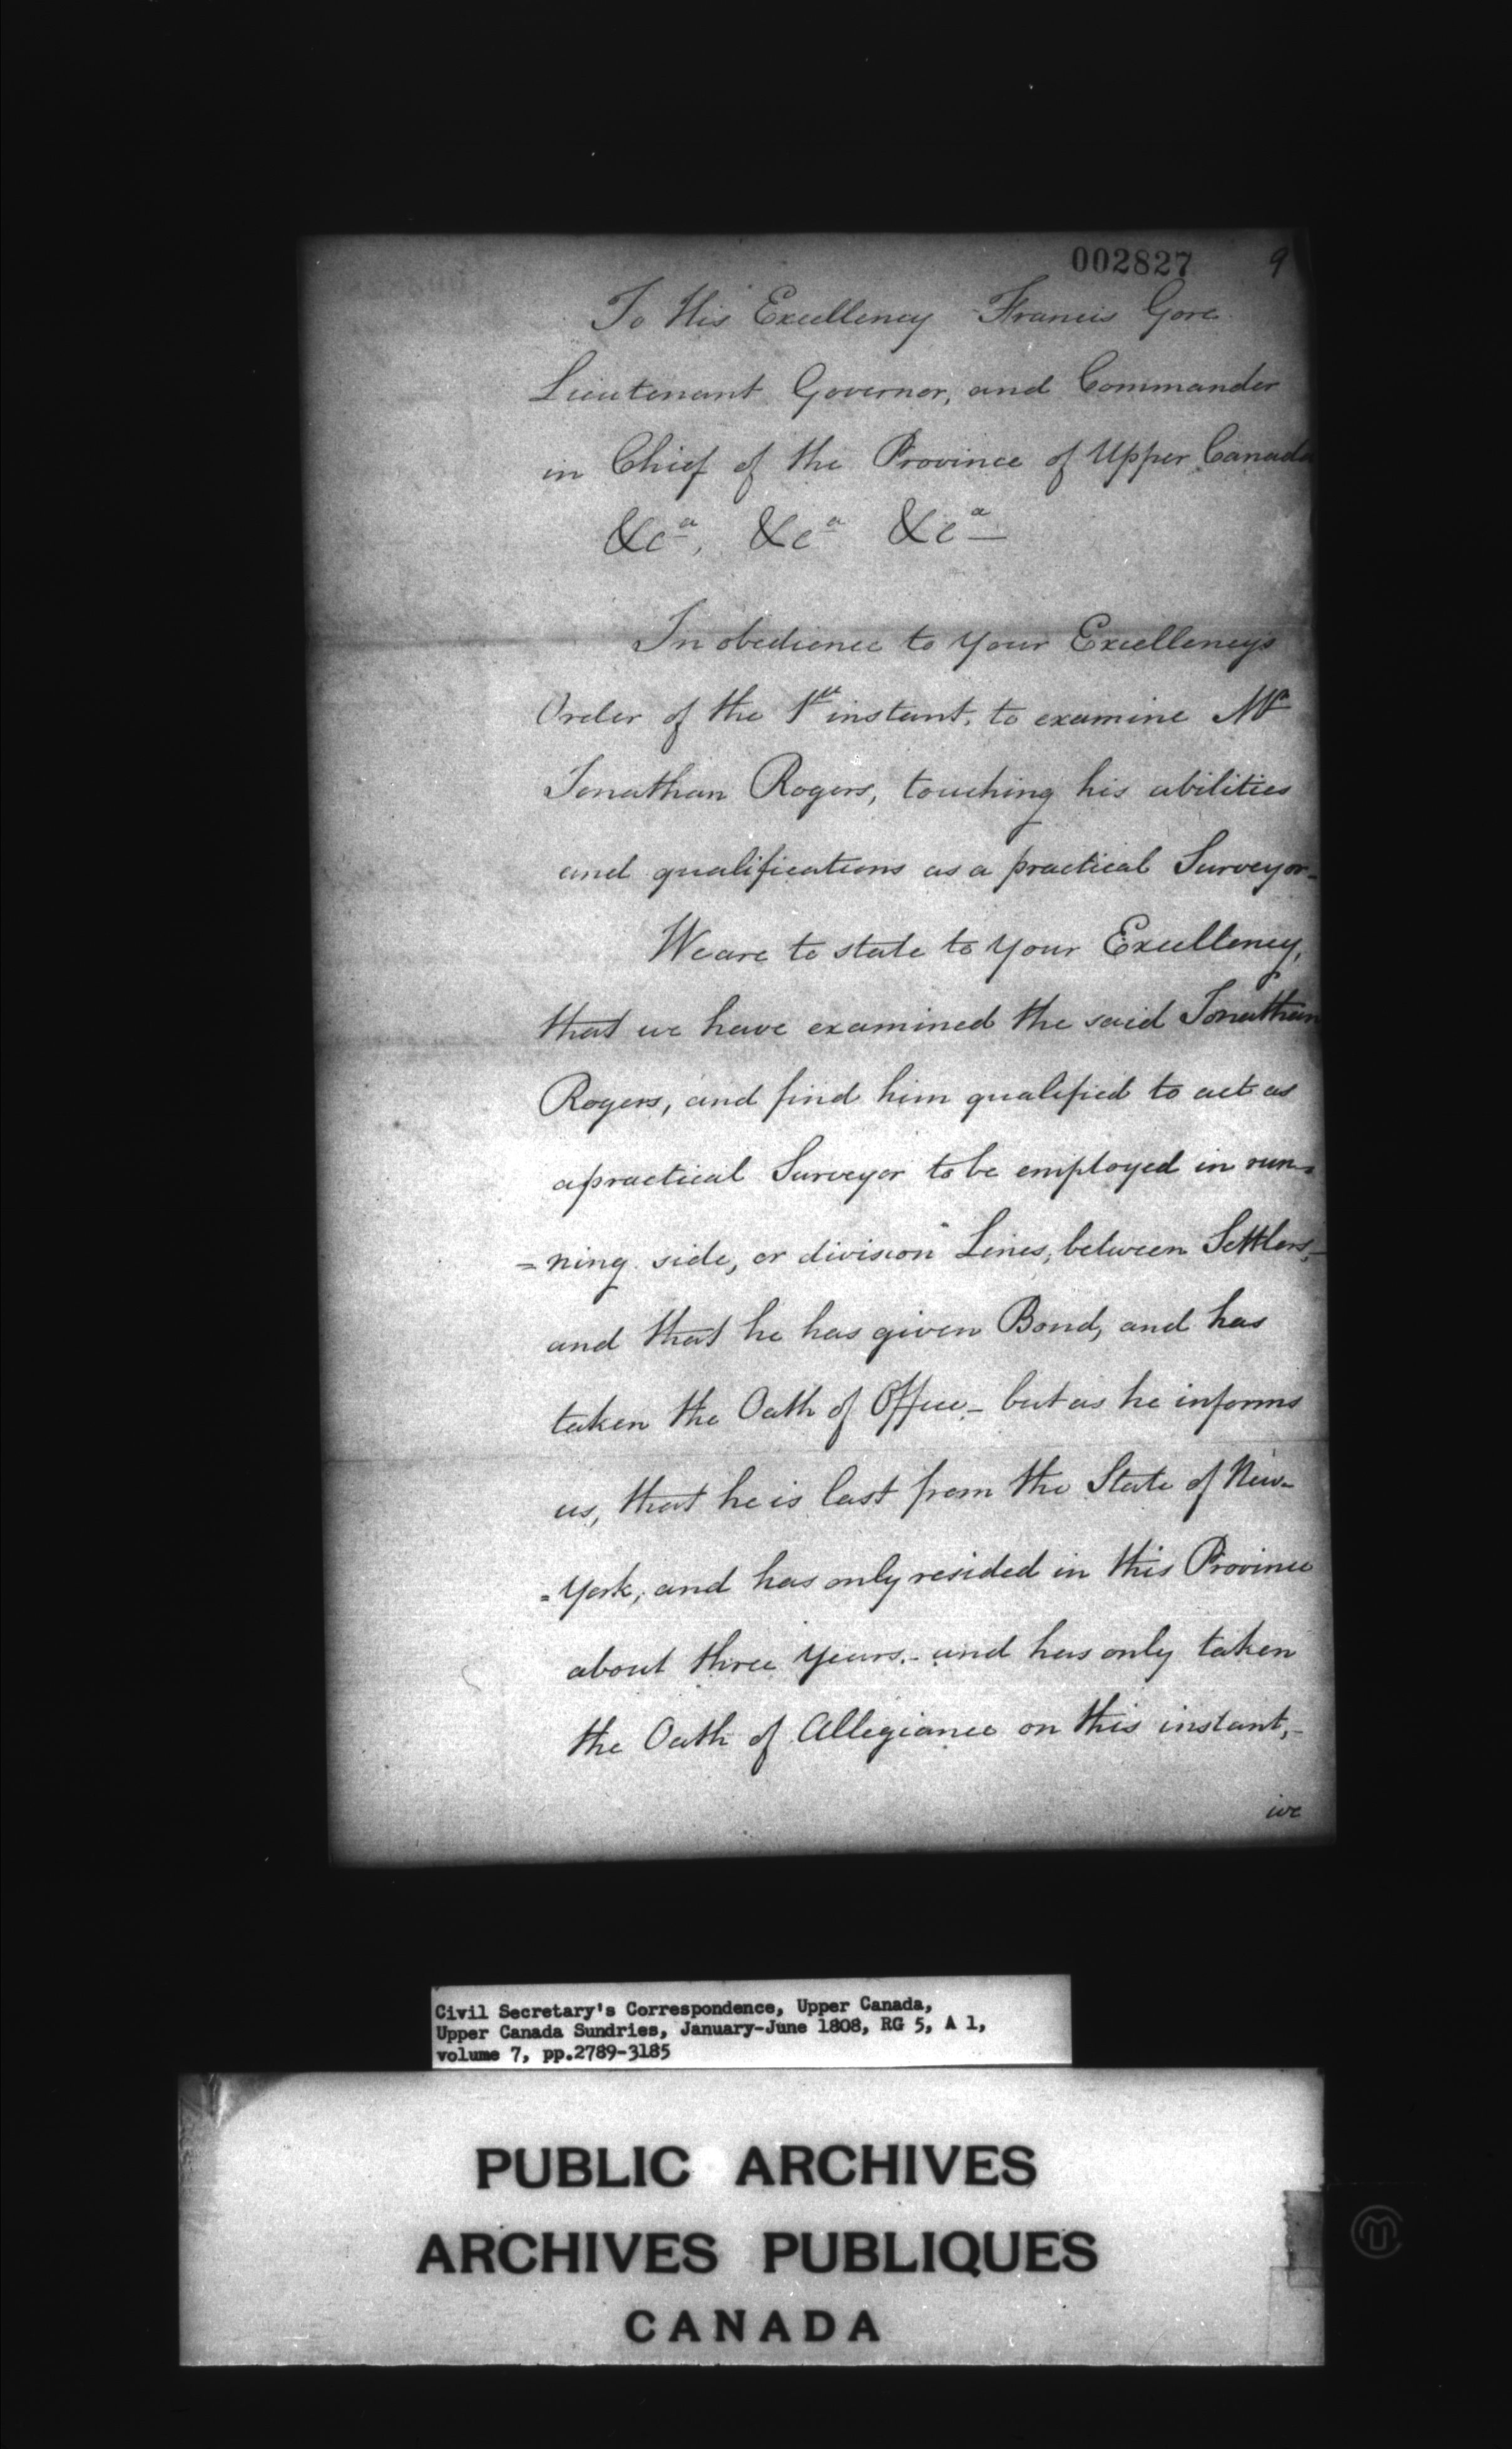 002827 9
To His Excellency Francis Gore
Lieutenant Governor, and Commander
in Chief of the Province of Upper Canada
&cª, &cª &cª
In obedience to your Excellency's
Order of the 1st instant, to examine Mr
Jonathan Rogers, touching his abilities
and qualifications as a practical Surveyor-
We are to state to your Excellency,
that we have examined the said Jonathan
Rogers, and find him qualified to act as
a practical Surveyor to be employed in run=
=ning side, or division Lines, between Settlers,-
and that he has given Bond, and has
taken the Oath of Office,- but as he informs
us, that he is last from the State of New-
=York, and has only resided in this Province
about three years.- and has only taken
the Oath of Allegiance on this instant,-
we
Civil Secretary's Correspondence, Upper Canada,
Upper Canada Sundries, January-June 1808, RG 5, A 1,
volume 7, pp.2789-3185
PUBLIC ARCHIVES
ARCHIVES PUBLIQUES
CANADA